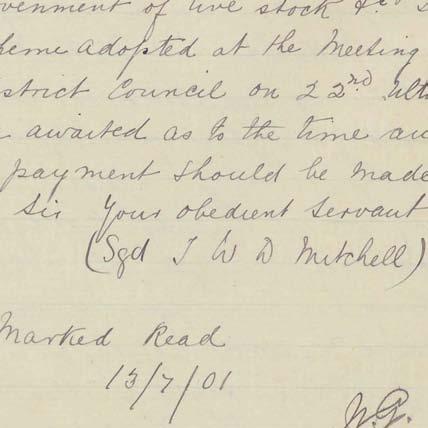 ovenment of live stock &c
heme adopted at the Meeting
strict Council on 22nd Ult
awaited as to the time an
payment should be made
Sir Your obedient Servant
(Sgd J W D Mitchell)
Marked Read
13/7/01
W.G.